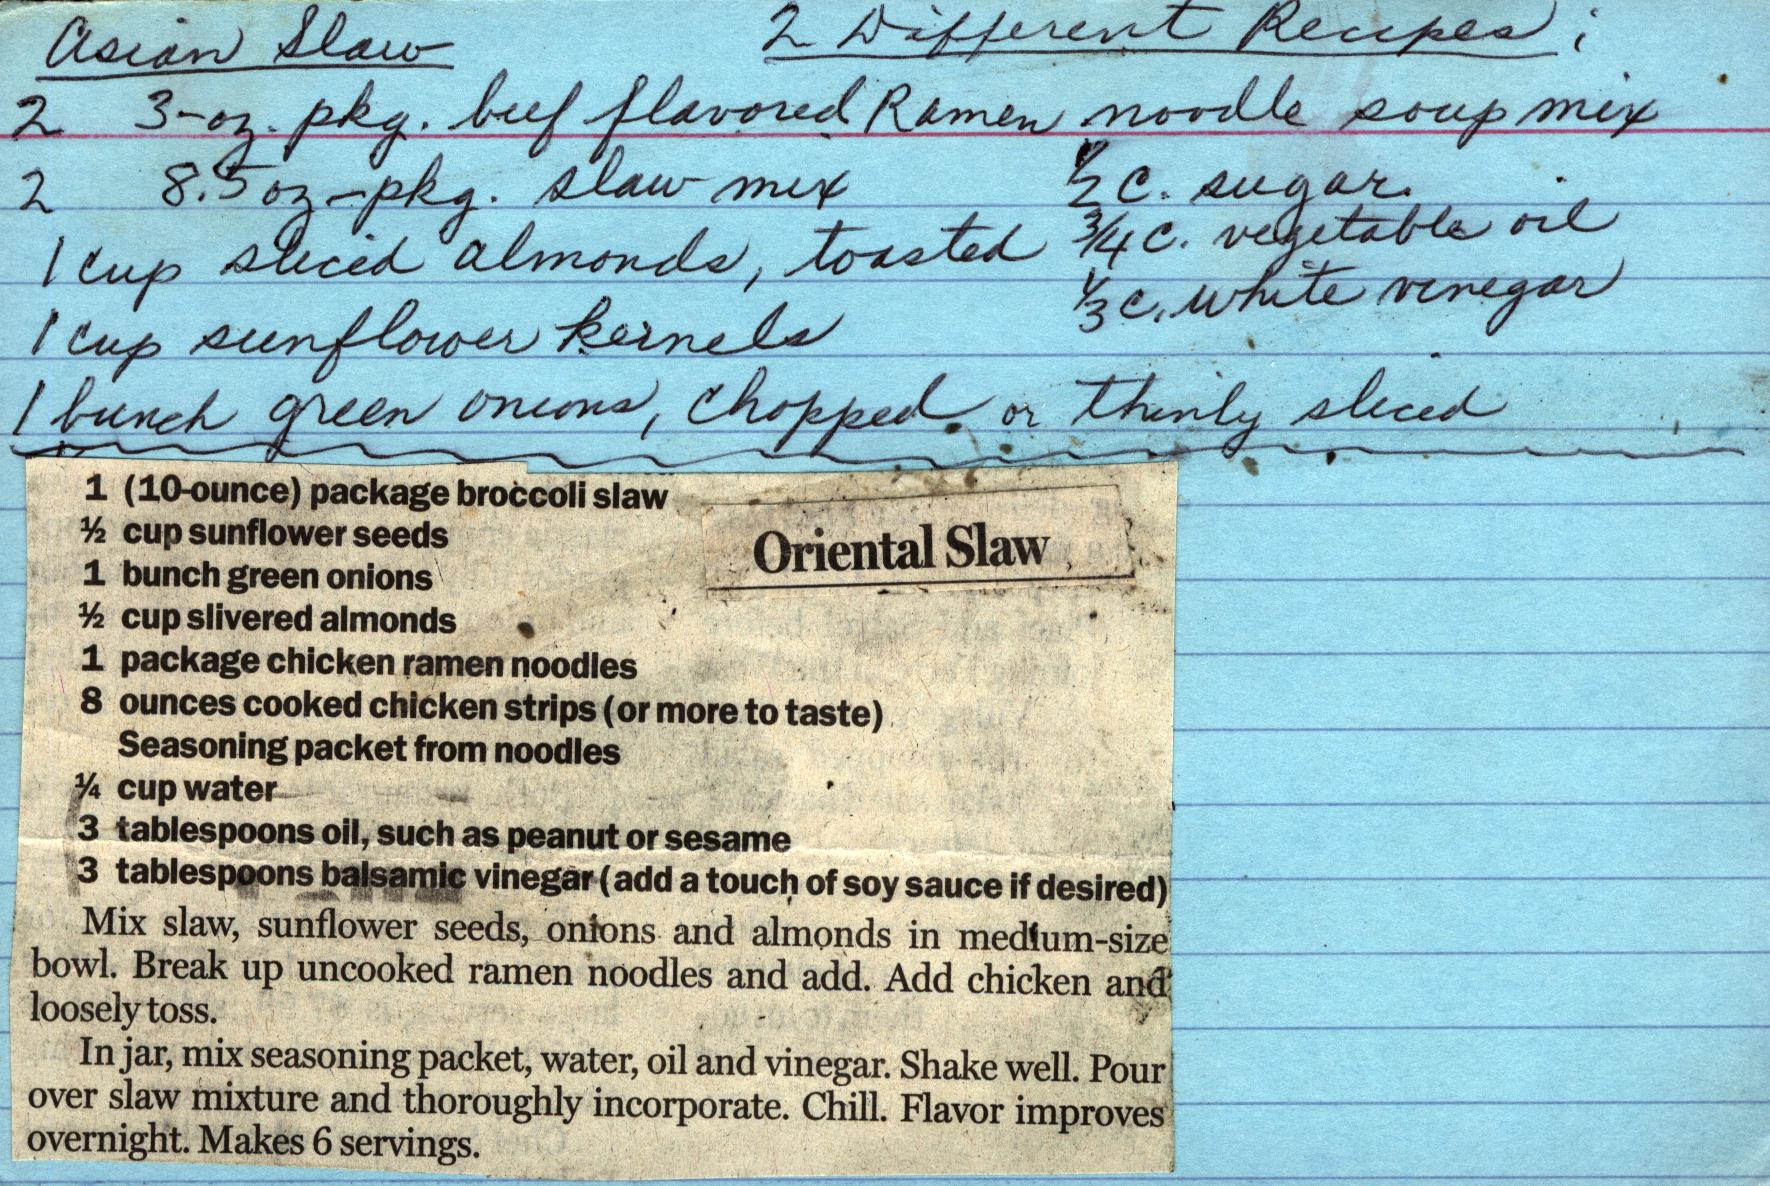 Asian Slaw 2 Different Recipes:
2 3-oz. pkg. beef flavored Ramen noodle soup mix
2 8.5 oz-pkg. slaw mix ½ c. sugar.
1 cup sliced almonds, toasted ¾ c. vegetable oil
1 cup sunflower kernels ⅓ c. white vinegar
1 bunch green onions, chopped or thinly sliced
Oriental Slaw
1 (10-ounce) package broccoli slaw
½ cup sunflower seeds
1 bunch green onions
½ cup slivered almonds
1 package chicken ramen noodles
8 ounces cooked chicken strips (or more to taste)
Seasoning packet from noodles
¼ cup water
3 tablespoons oil, such as peanut or sesame
3 tablespoons balsamic vinegar (add a touch of soy sauce if desired)
Mix slaw, sunflower seeds, onions and almonds in medium-size
bowl. Break up uncooked ramen noodles and add. Add chicken and
loosely toss.
In jar, mix seasoning packet, water, oil and vinegar. Shake well. Pour
over slaw mixture and thoroughly incorporate. Chill. Flavor improves
overnight. Makes 6 servings.